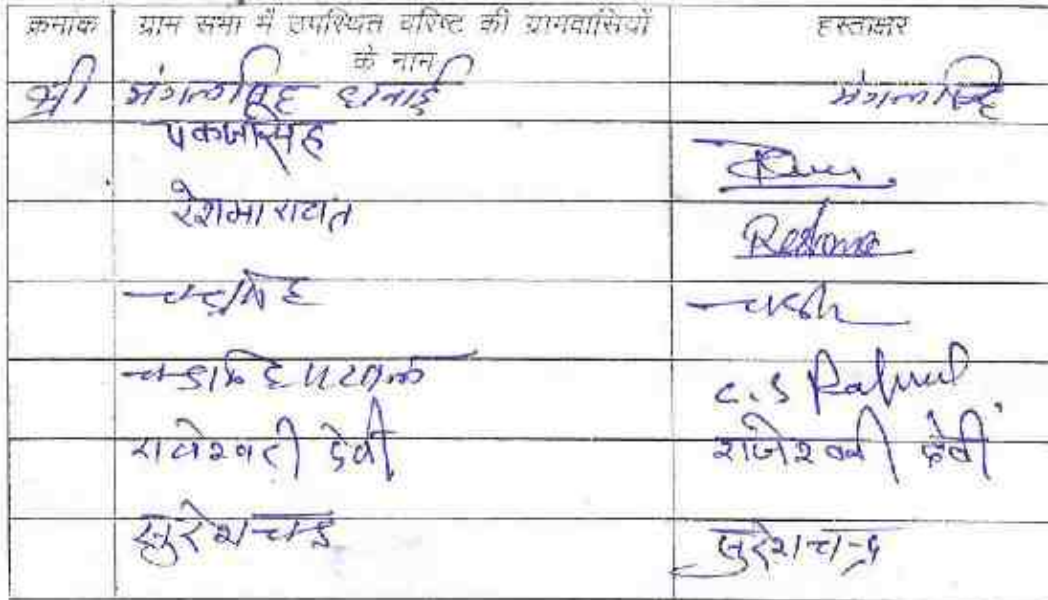 क्रमांक ग्राम सभा में उपस्थित वरिष्ट की ग्रामवासियों के नाम हस्ताक्षर
श्री मंगलसिंह धनाई मंगलसिंह
पंकजसिंह
रेशमा रावत Reshma
चन्द्रसिंह
चन्द्रसिंह C.S
राजेश्वरी देवी राजेश्वरी देवी
सुरेशचन्द्र सुरेशचन्द्र